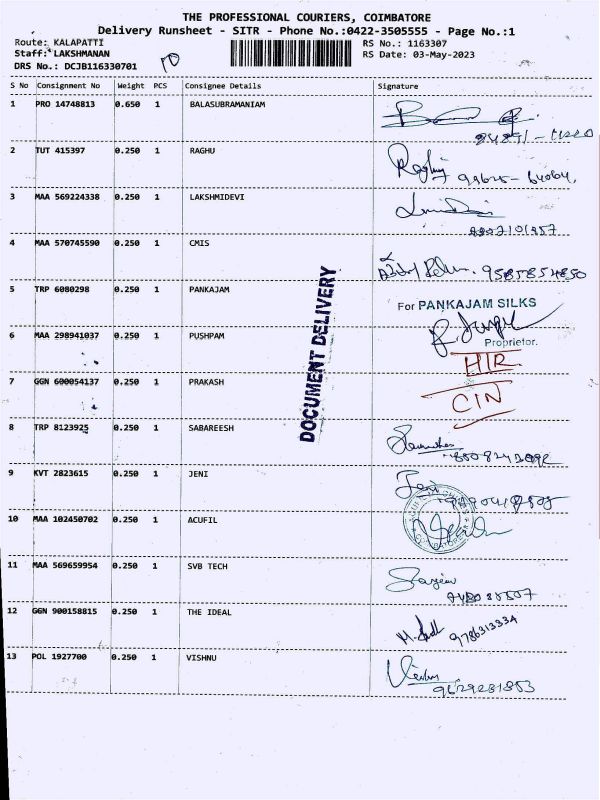 THE PROFESSIONAL COURIERS, COIMBATORE
Delivery Runsheet - SITR - Phone No.:0422-3505555 - Page No.:1
Route: KALAPATTI RS No.: 1163307
Staff: LAKSHMANAN RS Date: 03-May-2023
DRS No.: DCJB116330701
S No Consignment No Weight PCS Consignee Details Signature
1 PRO 14748813 0.650 1 BALASUBRAMANIAM
2 TUT 415397 0.250 1 RAGHU
3 MAA 569224338 0.250 1 LAKSHMIDEVI
4 MAA 570745590 0.250 1 CMIS
9585854850
5 TRP 6080298 0.250 1 PANKAJAM
For PANKAJAM SILKS
Proprietor.
6 MAA 298941037 0.250 1 PUSHPAM
HIR
7 GGN 600054137 0.250 1 PRAKASH
CIN
DOCUMENT DELIVERY
8 TRP 8123925 0.250 1 SABAREESH
9 KVT 2823615 0.250 1 JENI
Jeni
10 MAA 102450702 0.250 1 ACUFIL
11 MAA 569659954 0.250 1 SVB TECH
12 GGN 900158815 0.250 1 THE IDEAL
9786313334
13 POL 1927700 0.250 1 VISHNU
9629281853